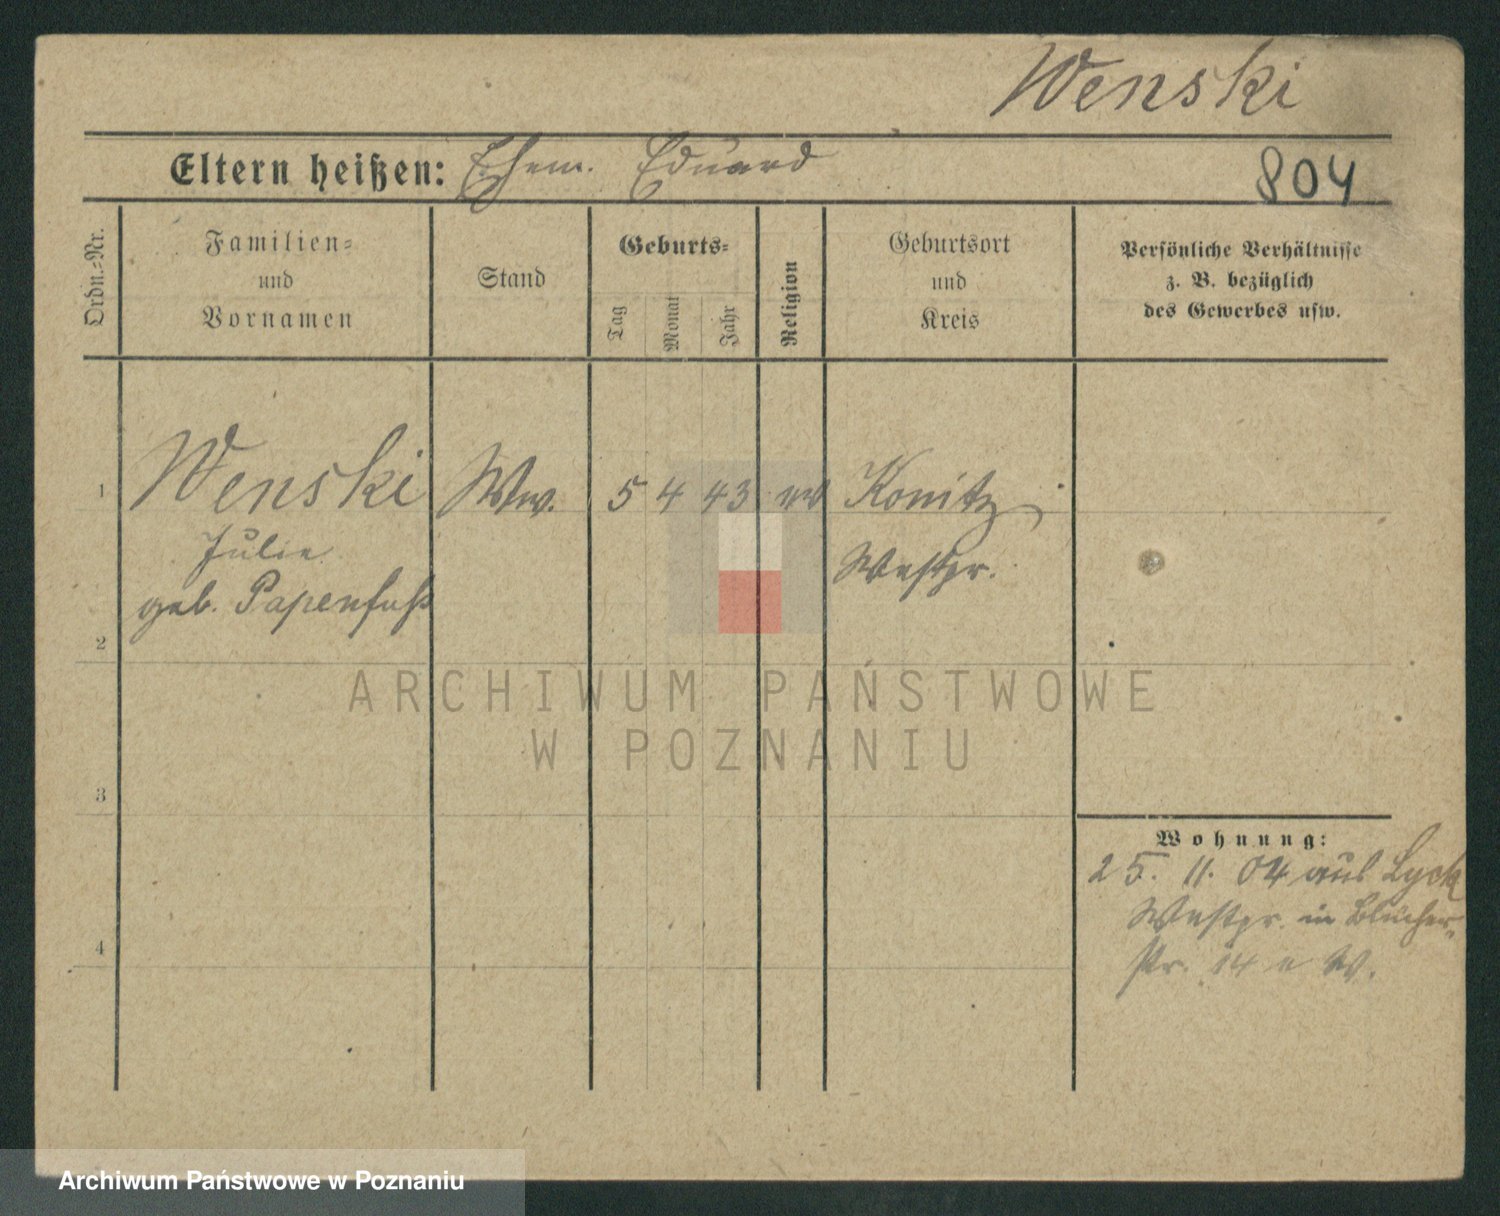 Wenski
Eltern heißen: Ehem. Eduard
804
Ordn.-Nr.
Familien-
und
Vornamen
Stand
Geburts-
Tag
Monat
Jahr
Religion
Geburtsort
und
Kreis
Persönliche Verhältnisse
z. B. bezüglich
des Gewerbes usw.
1 Wenski Ww. 5 4 43 ev Konitz
Julie Westpr.
geb. Papenfuß
2
3
4
ARCHIWUM PAŃSTWOWE
W POZNANIU
Wohnung:
25. 11. 04 aus Lyck
Westpr. in Blücher-
str. 14 W.
Archiwum Państwowe w Poznaniu